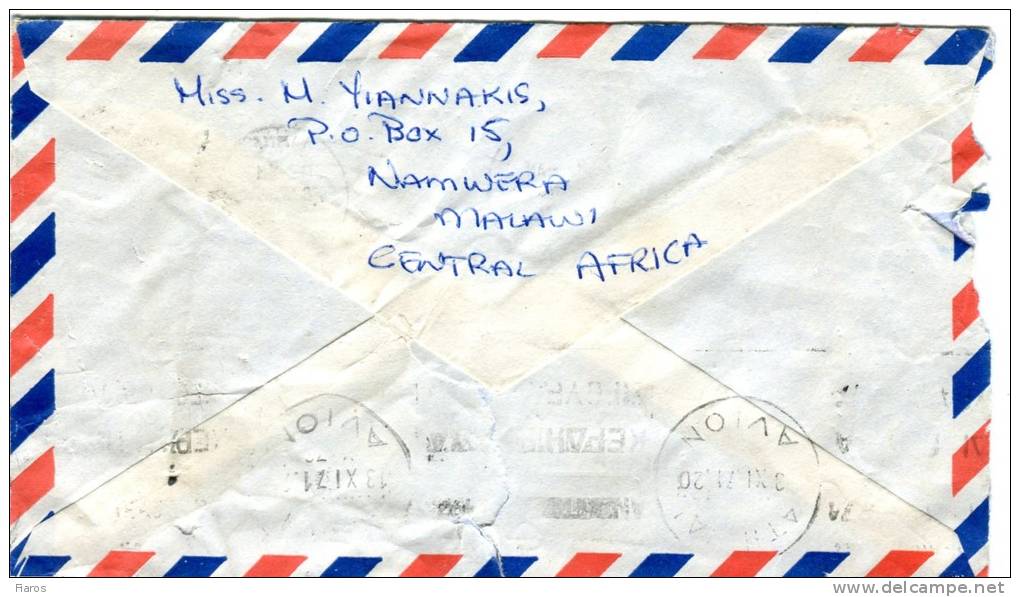 Miss. M. YIANNAKIS,
P.O. Box 15,
NAMWERA
MALAWI
CENTRAL AFRICA
AVION
13 XI.71
AVION
3 XI.71.20
©Raros
www.delcampe.net